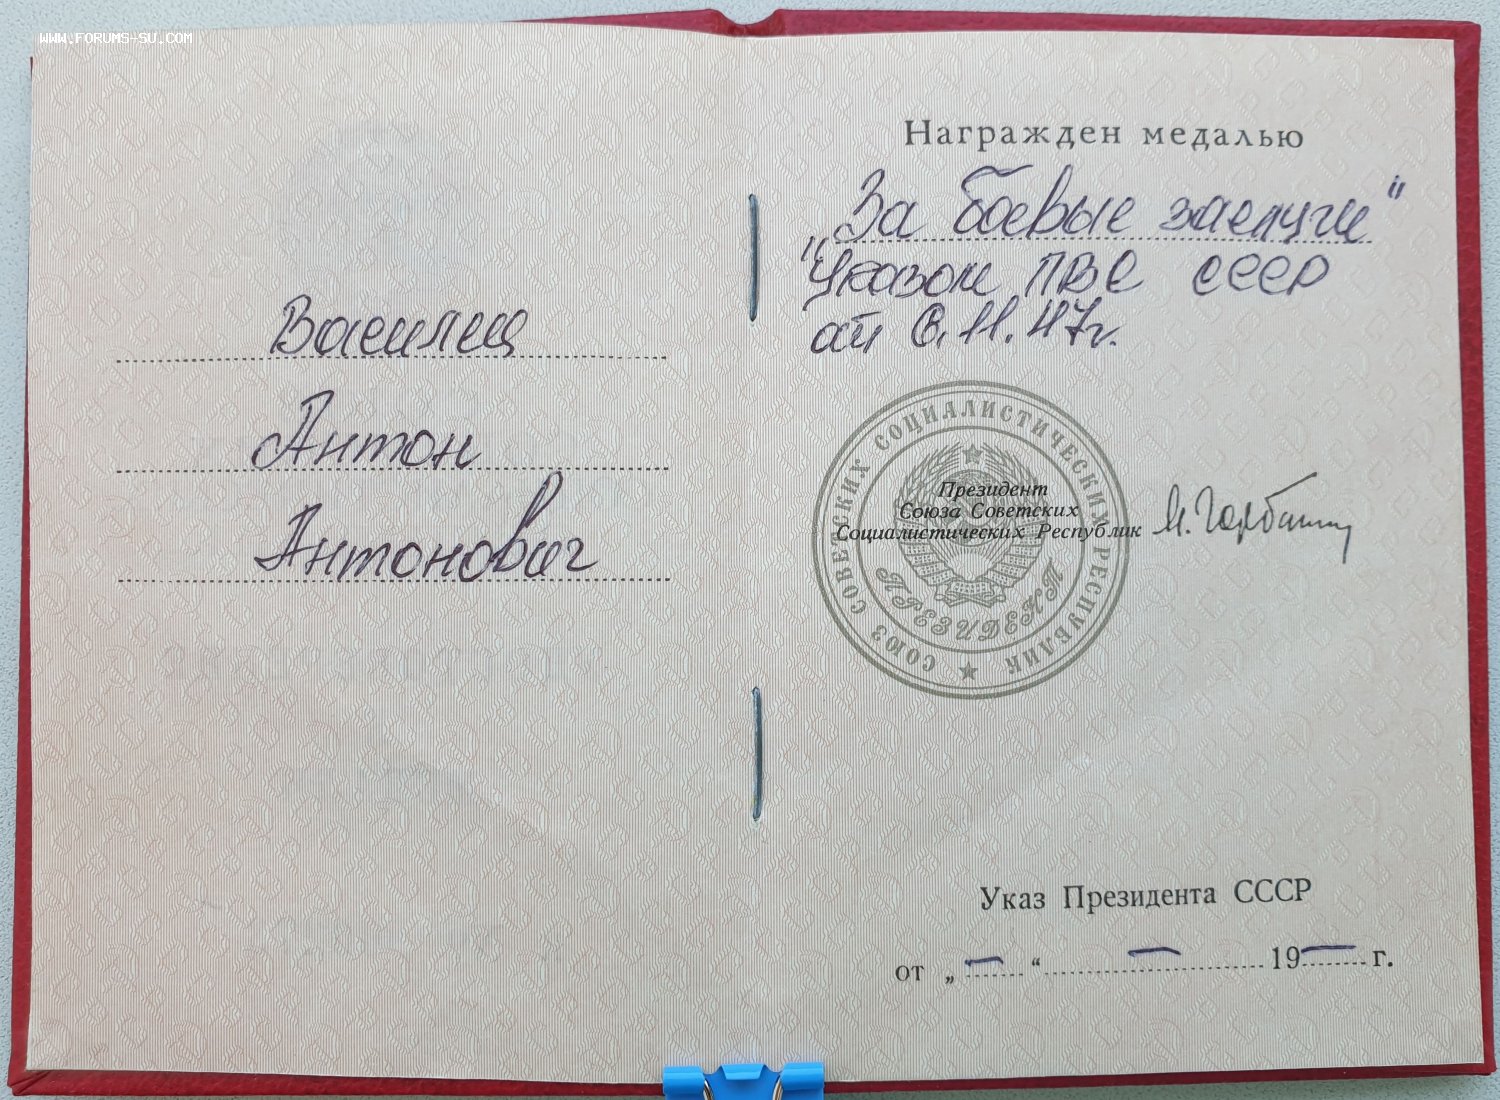 WWW.FORUMS-SU.COM
Василец
Антон
Антонович
Награжден медалью
„За боевые заслуги“
"Указом ПВС СССР
от 6.11.47г.
СОЮЗ СОВЕТСКИХ СОЦИАЛИСТИЧЕСКИХ РЕСПУБЛИК
Президент
Союза Советских
Социалистических Республик
М. Горбачев
ПРЕЗИДЕНТ
Указ Президента СССР
от „ — “ — 19 — г.